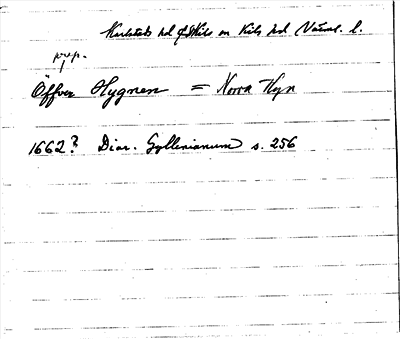 Karlstads hd & Kils sn Kils hd Värml. l.
prep.
Öffver Hygnen = Norra Hyn
1662? Diar. Gyllenianum s. 256